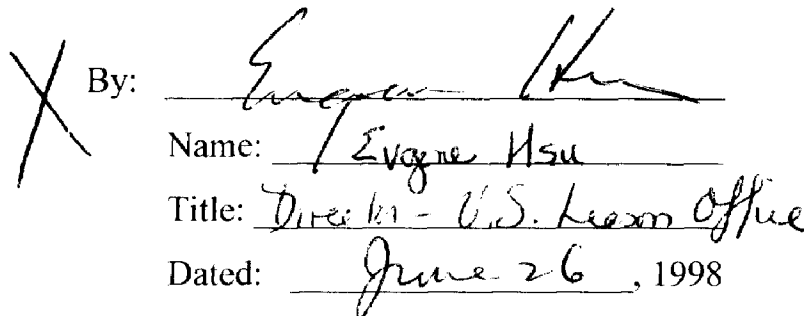 X By: Eugene Hsu
Name: Eugene Hsu
Title: Director - U.S. Liason Office
Dated: June 26, 1998